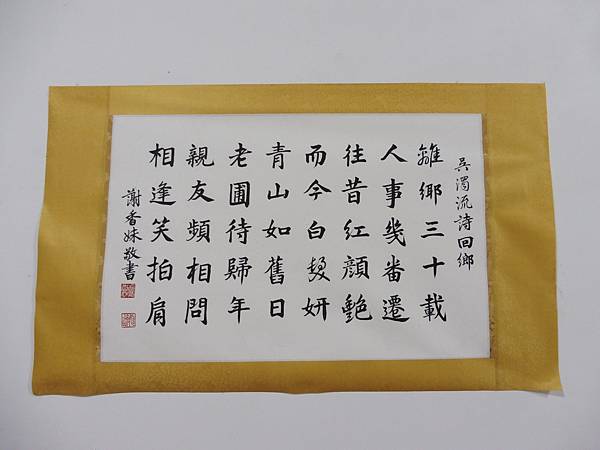 吳濁流詩回鄉
離鄉三十載
人事幾番遷
往昔紅顏艷
而今白髮妍
青山如舊日
老圃待歸年
親友頻相問
相逢笑拍肩
謝香妹敬書